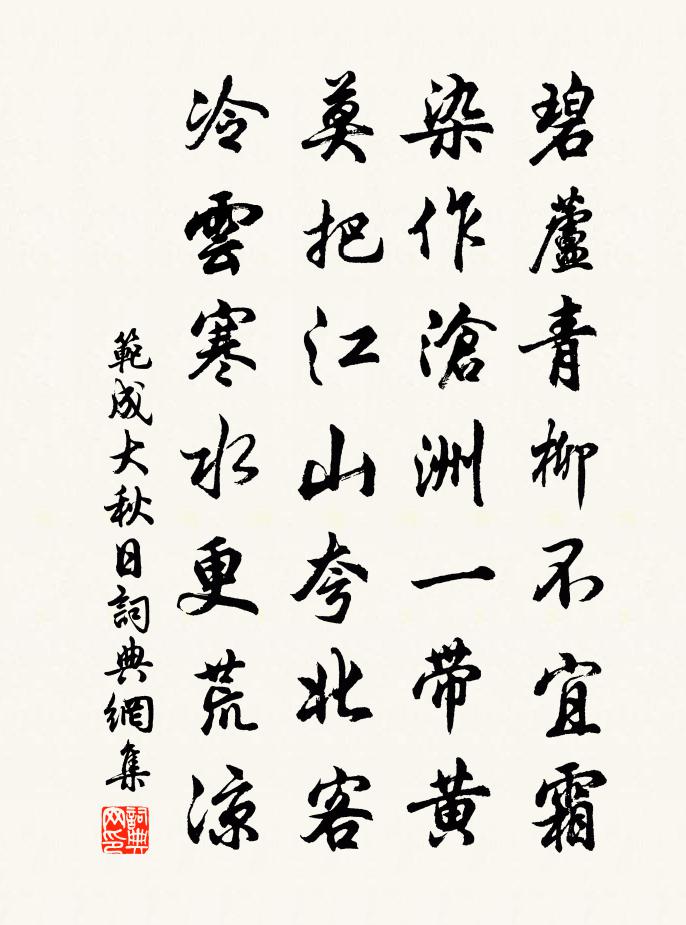 碧蘆青柳不宜霜
染作滄洲一带黄
莫把江山夸北客
冷雲寒水更荒凉
範成大秋日詞典網集
詞典网印